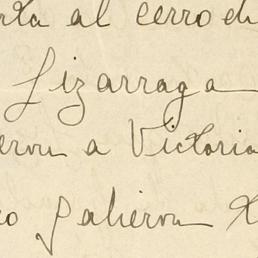 al cerro de
Lizarraga
a Victoria
salieron